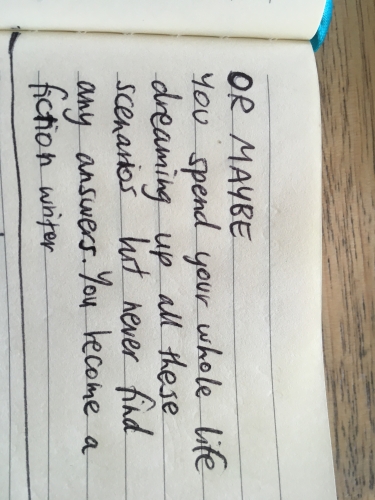 OR MAYBE
you spend your whole life
dreaming up all these
scenarios but never find
any answers. You become a
fiction writer